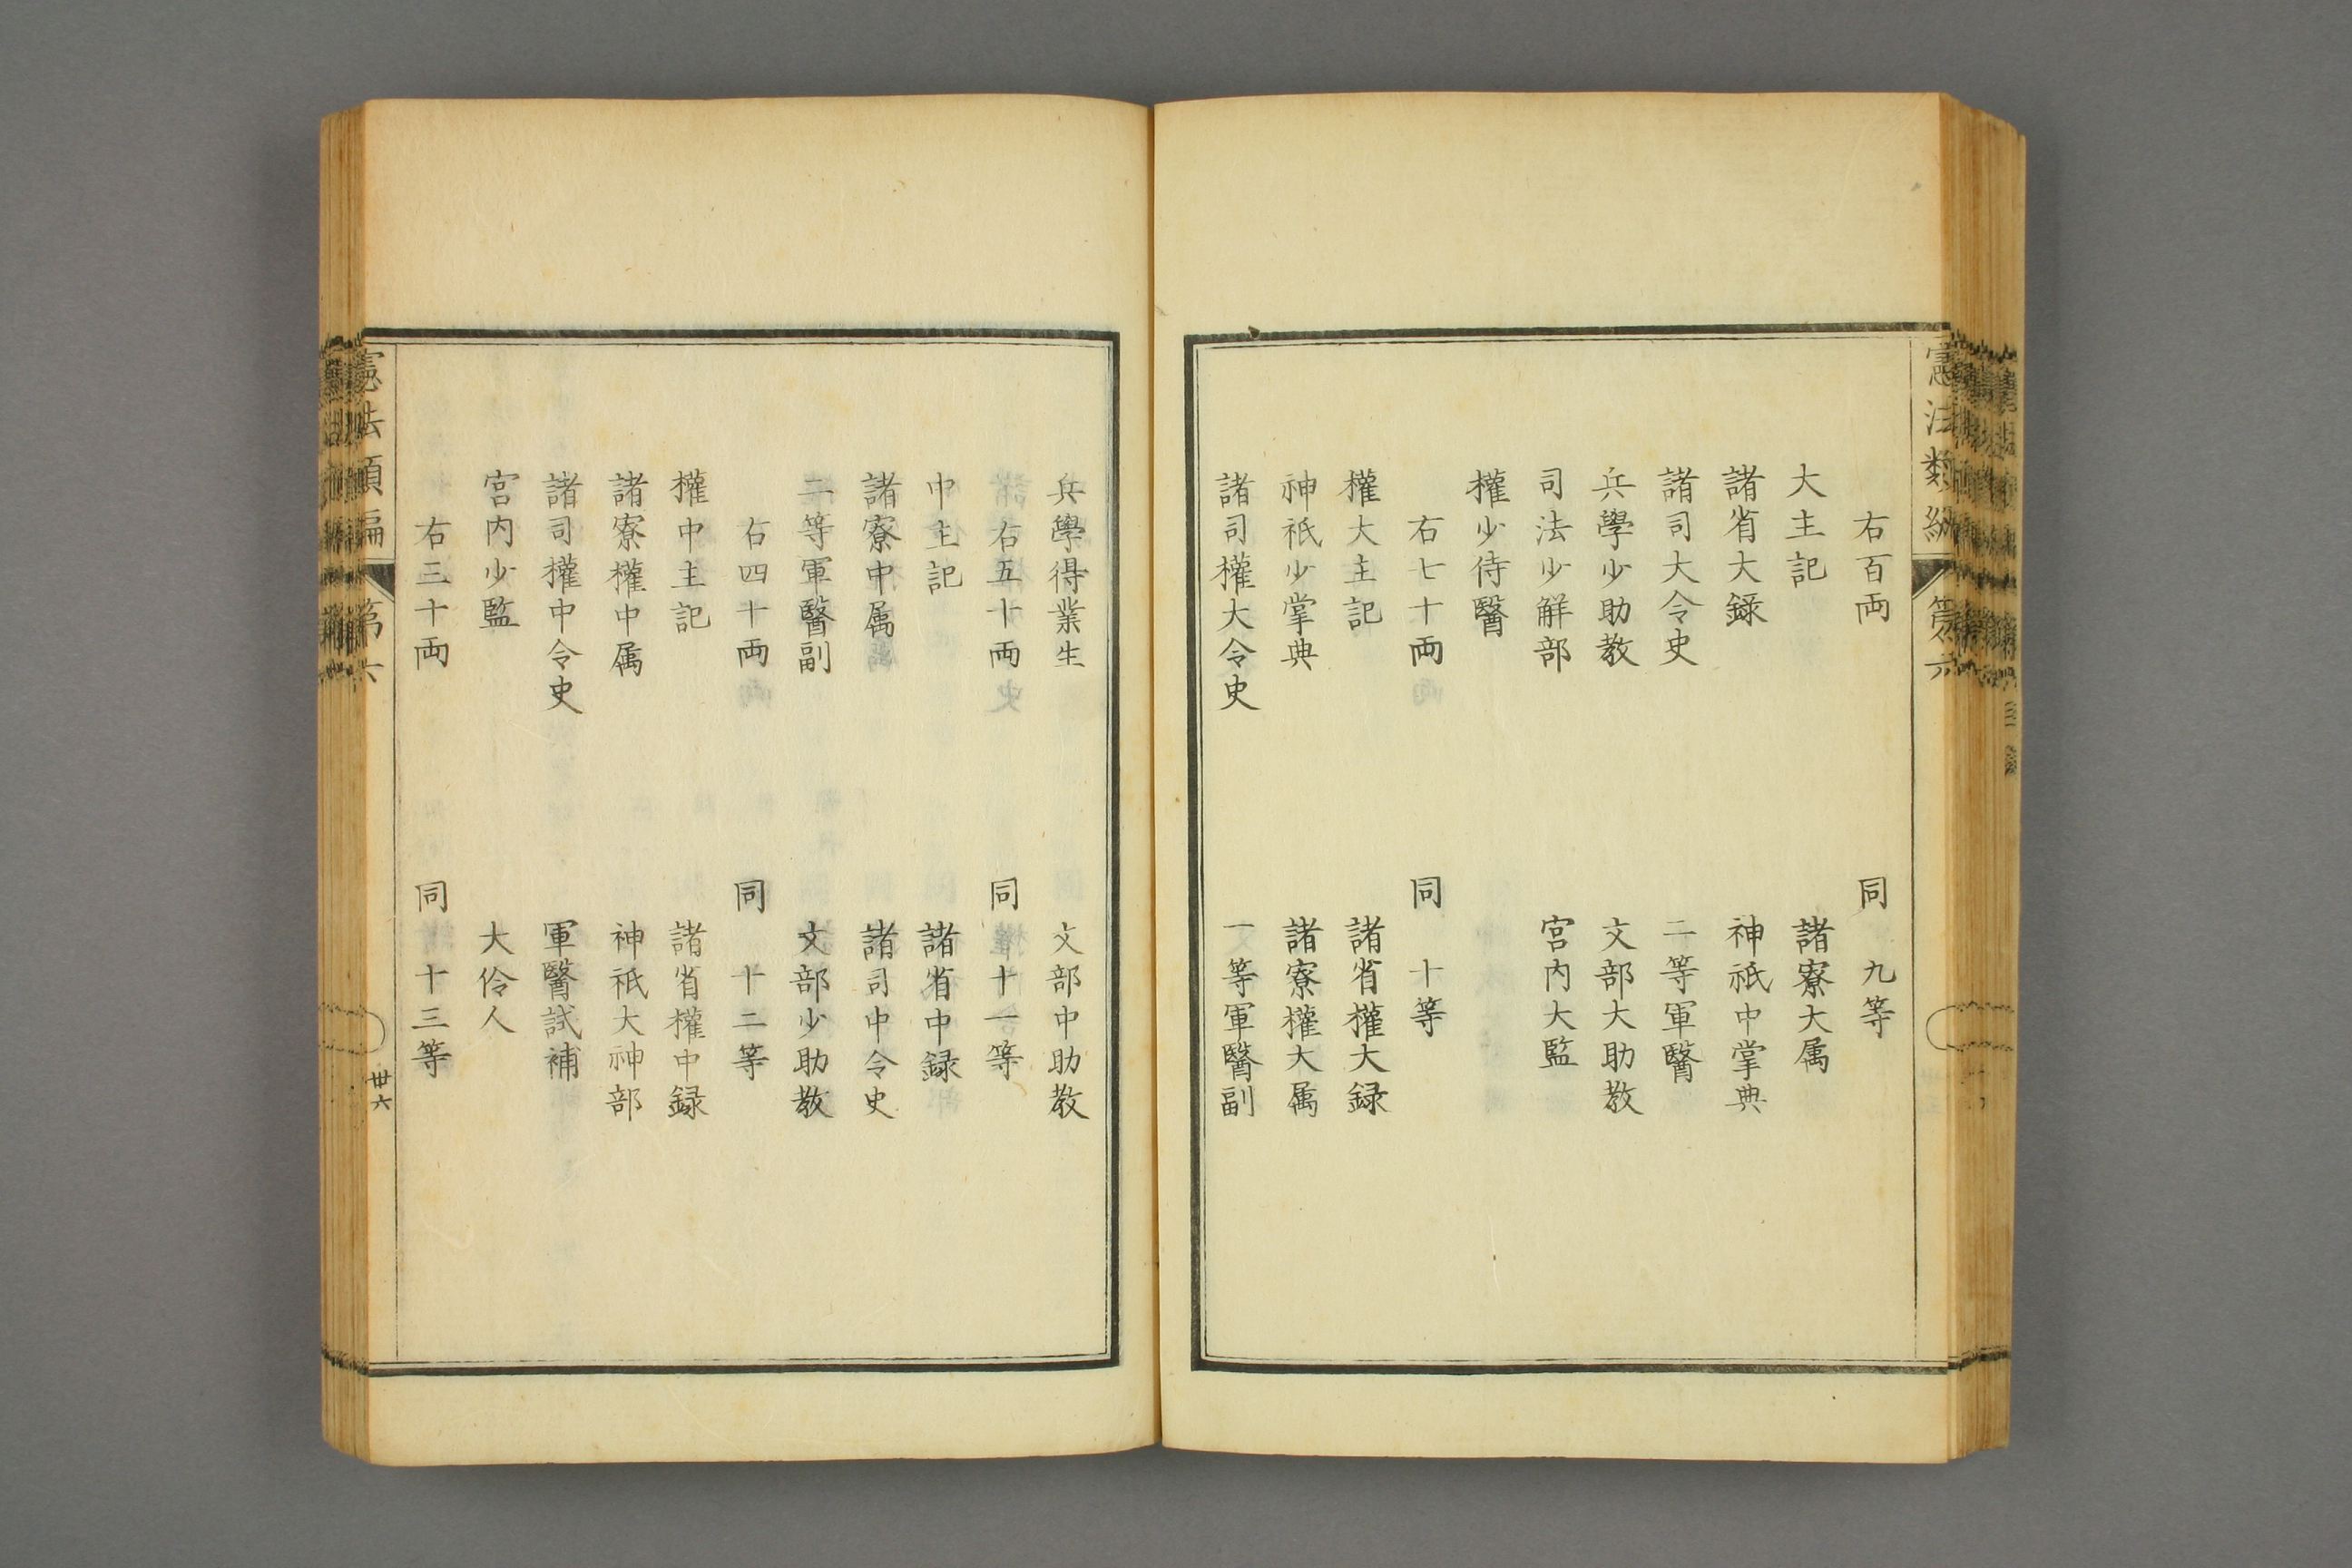 右百両　同　九等
大主記　諸寮大属
諸省大録　神祇中掌典
諸司大令史　二等軍醫
兵學少助教　文部大助教
司法少解部　宮内大監
權少侍醫
右七十両　同　十等
權大主記　諸省權大録
神祇少掌典　諸寮權大属
諸司權大令史　一等軍醫副
兵學得業生　文部中助教
右五十両　同　十一等
中主記　諸省中録
諸寮中属　諸司中令史
二等軍醫副　文部少助教
右四十両　同　十二等
權中主記　諸省權中録
諸寮權中属　神祇大神部
諸司權中令史　軍醫試補
宮内少監　大伶人
右三十両　同　十三等
憲法類編　第六　卅六